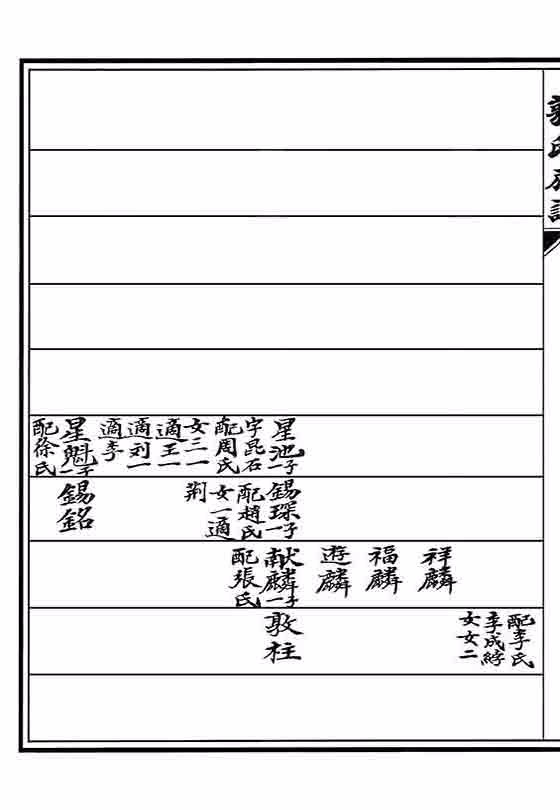 郭氏族譜
星池一子
字昆石
配周氏
女三一
適王一
適刘一
適李
星魁一子
配徐氏
錫琛一子
配趙氏
女一適
荆
錫銘
祥麟
福麟
遊麟
献麟一子
配張氏
配李氏
李成
女
女二
敦柱